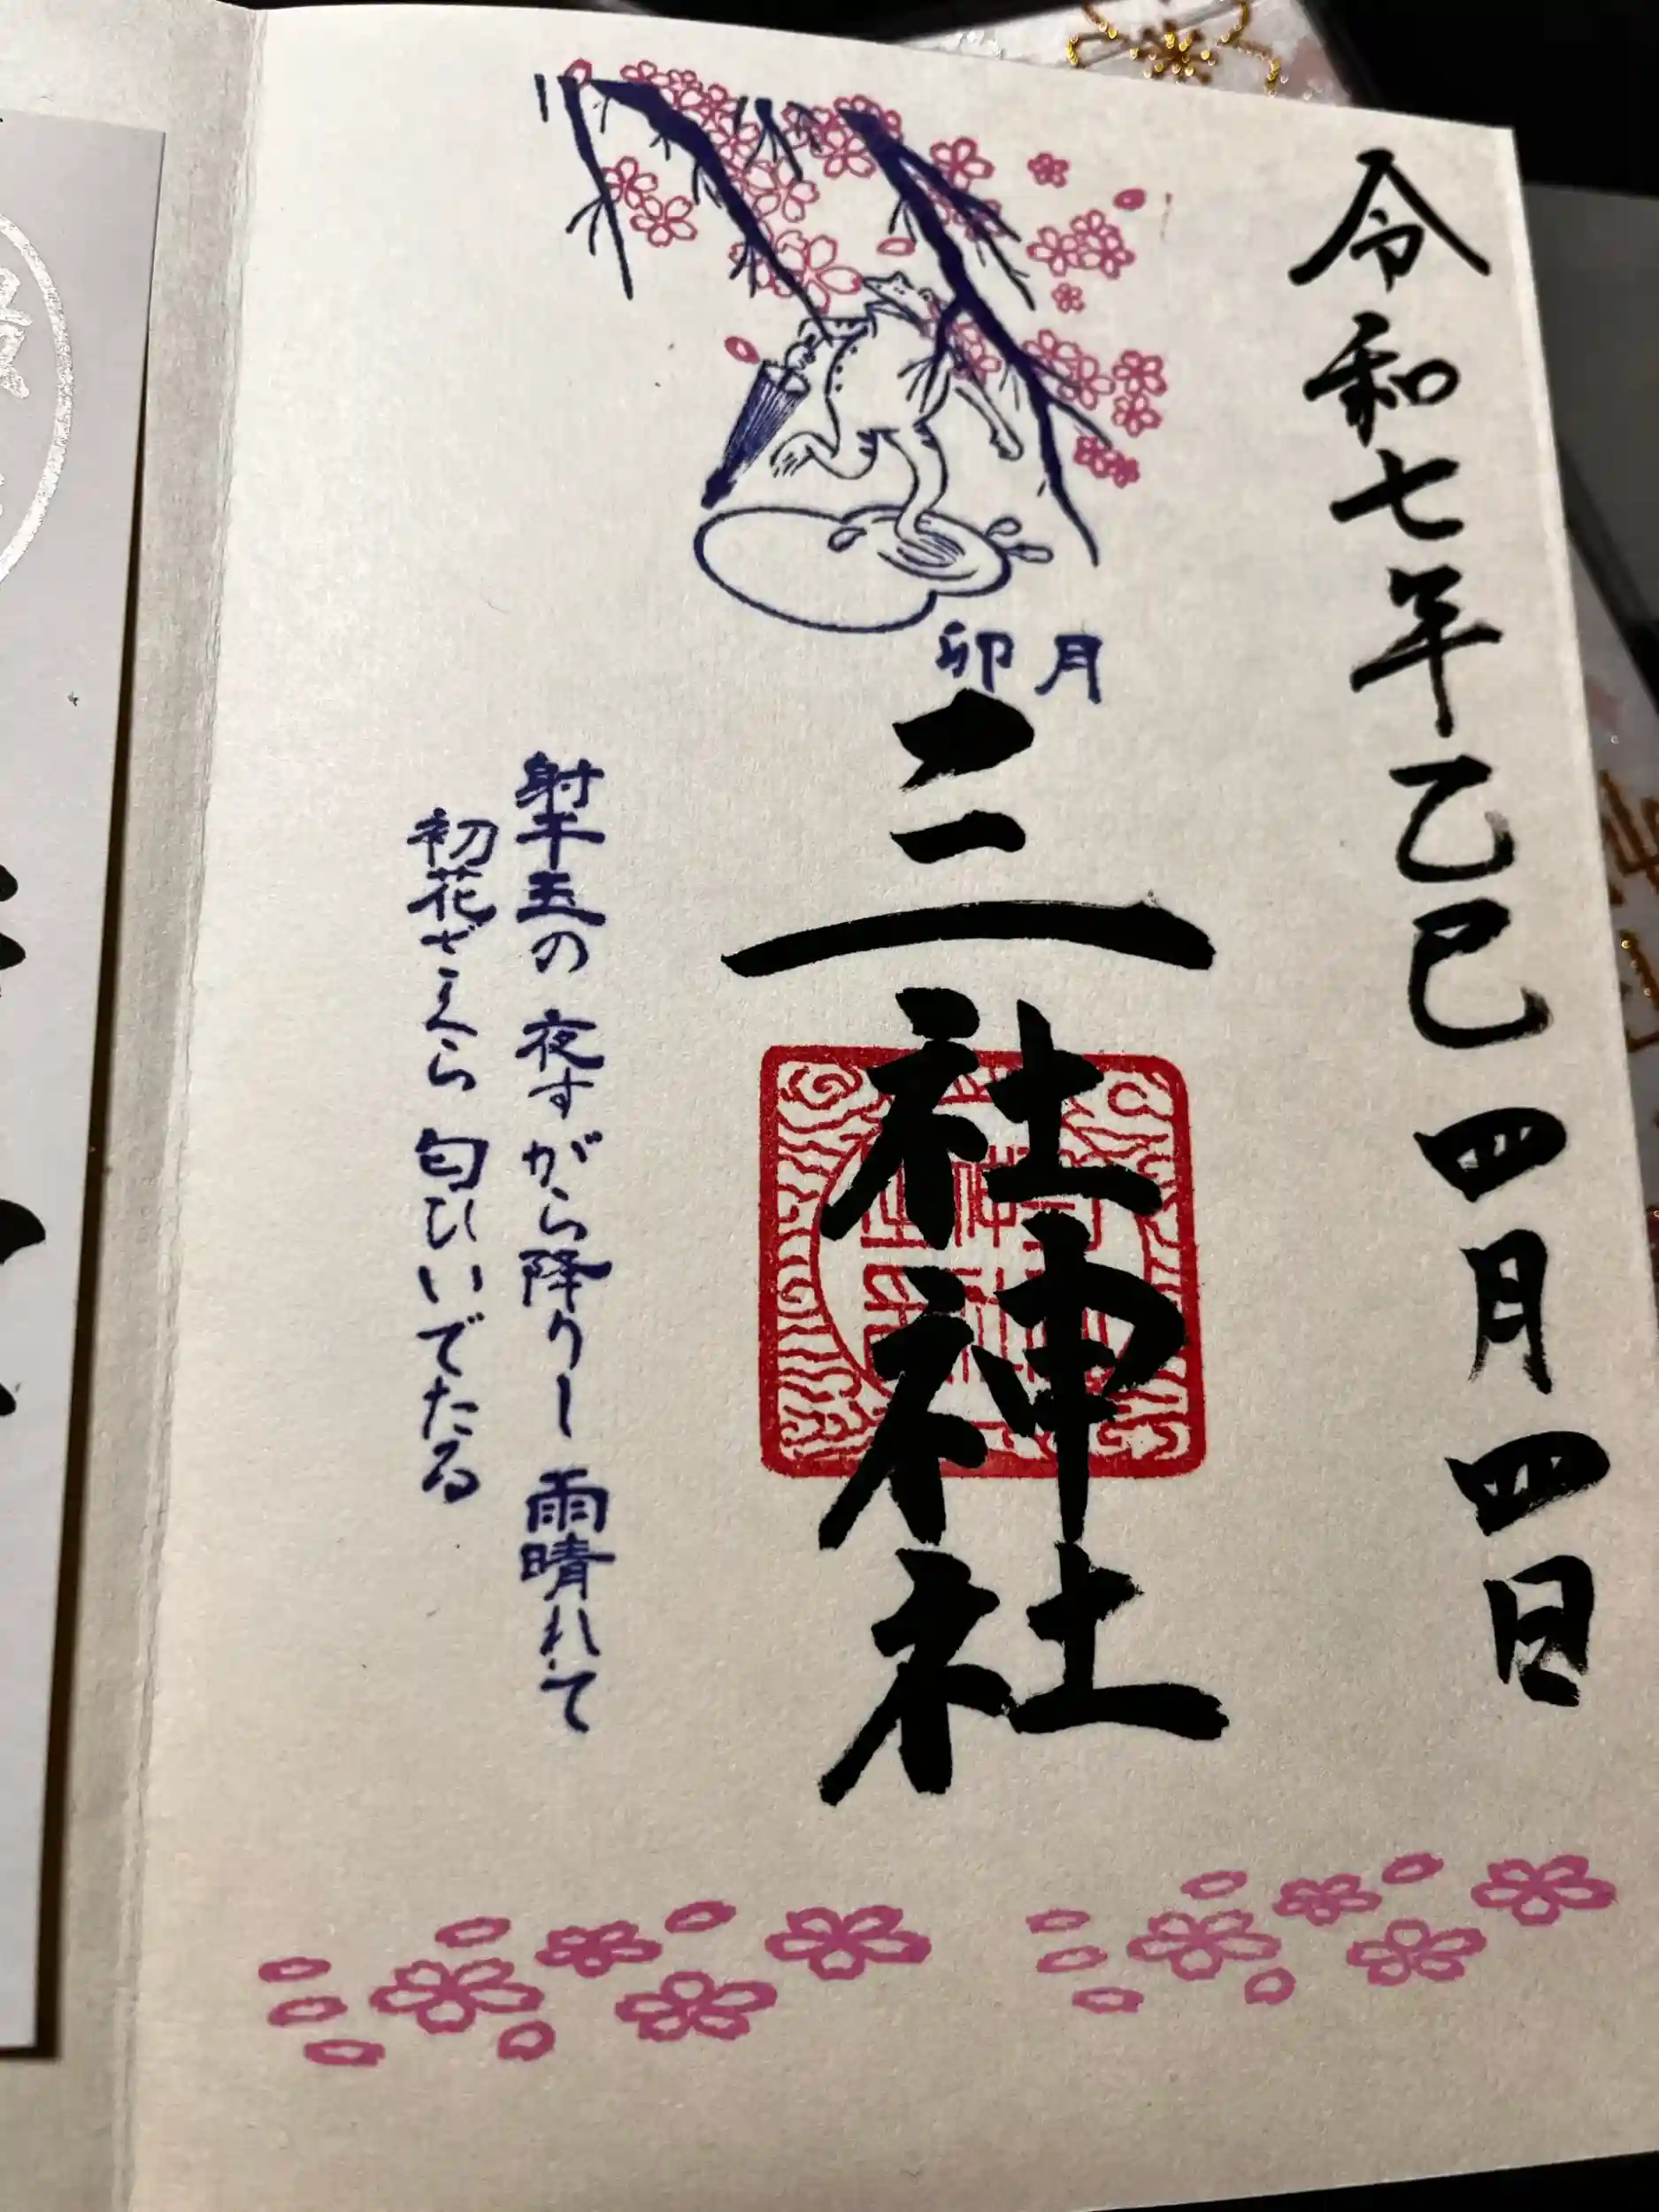 令和七年乙巳四月四日
卯月
三社神社
射干玉の 夜すがら降りし 雨晴れて
初花ざくら 匂ひいでたる